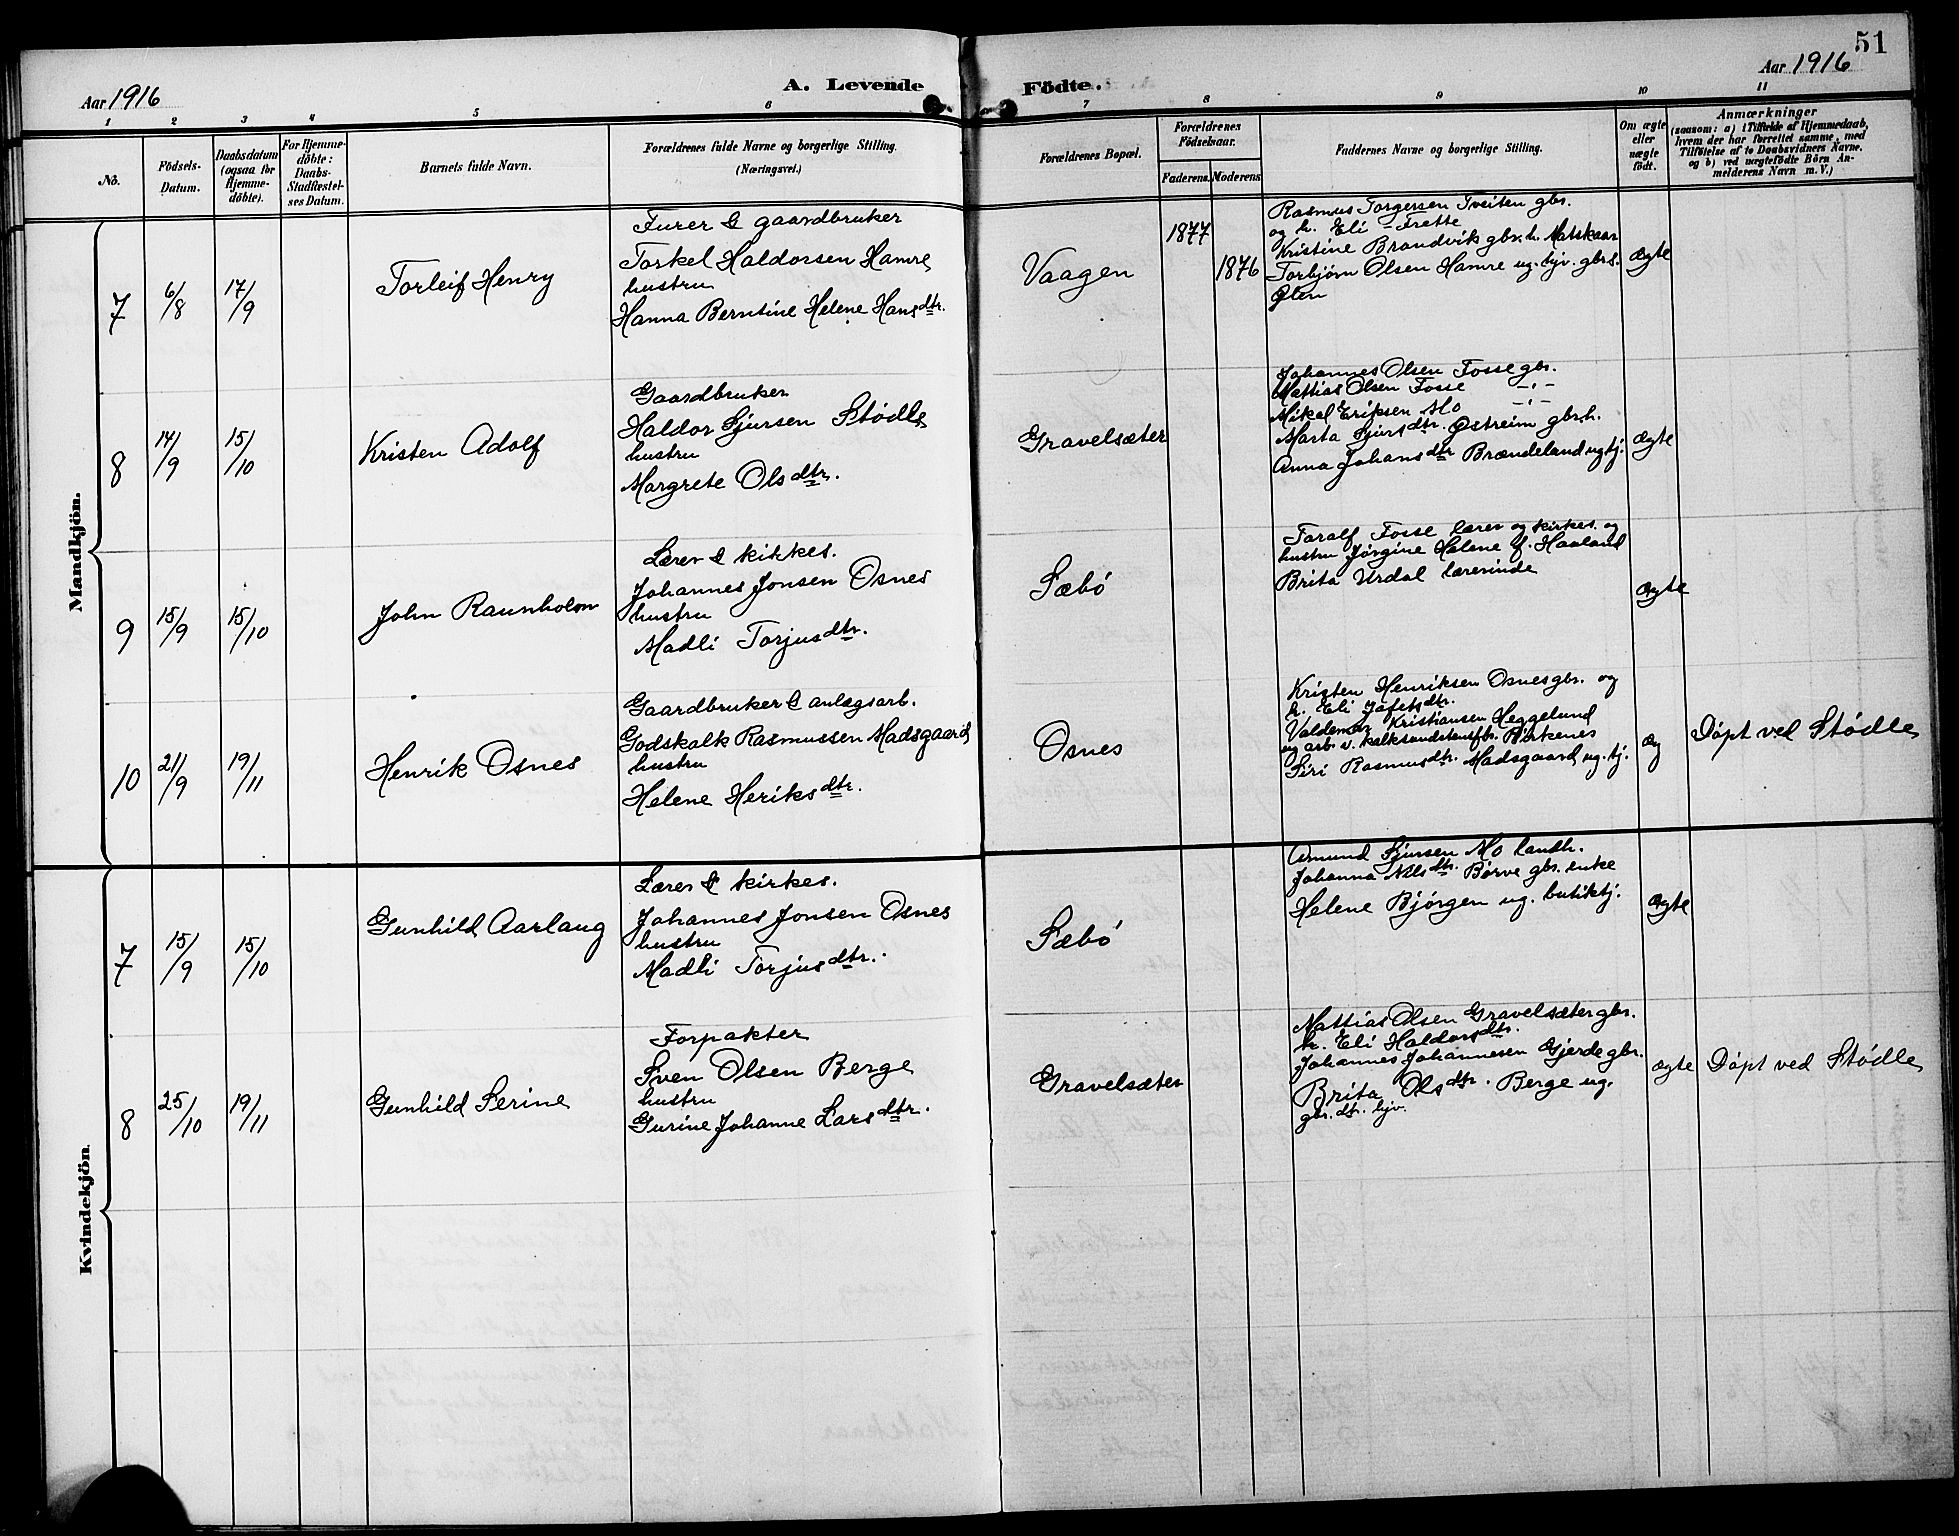 51
Aar 1916
A. Levende Födte.
Aar 1916
1 2 3 4 5 6 7 8 9 10 11
No.
Födsels-Datum.
Daabsdatum (ogsaa for Hjemme-döbte).
For Hjemme-döbte: Daabs-Stadfæstel-ses Datum.
Barnets fulde Navn.
Forældrenes fulde Navne og borgerlige Stilling.
(Næringsvei.)
Forældrenes Bopæl.
Forældrenes Födselsaar.
Faderens. Moderens
Faddernes Navne og borgerlige Stilling.
Om ægte eller uægte födt.
Anmærkninger
(saasom: a) i Tilfælde af Hjemmedaab,
hvem der har forrettet samme, med
Tilföielse af to Daabsvidners Navne.
og b) ved uægtefödte Börn An-
melderens Navn m. V.)
Mandkjön.
7 6/8 17/9 Torleif Henry
Furer & gaardbruker
Torkel Haldorsen Hamre
hustru
Hanna Berntine Helene Hansdtr.
Vaagen
1877
1876
Rasmus Torgersen Tveiten gbr.
og h. Eli - Frette
Kristine Brandvik gbr. h. Matskaar
Torbjørn Olsen Hamre ug. hjv. gbr.s.
Ølen
ægte
8 14/9 15/10 Kristen Adolf
Gaardbruker
Haldor Sjursen Stødle
hustru
Margrete Olsdtr.
Gravelsæter
Johannes Olsen Fosse gbr.
Mattias Olsen Fosse -"-
Mikal Eriksen Mo -"-
Marta Sjursdtr. Østreim gbr.h.
Anna Johansdtr Brændeland ug tj.
ægte
9 15/9 15/10 John Raunholm
Lærer & kirkes.
Johannes Jonsen Osnes
hustru
Madli Torjusdtr.
Sæbø
Taralf Fosse lærer og kirkes. og
hustru Jørgine Helene f. Haaland
Brita Urdal lærerinde
ægte
10 21/9 19/11 Henrik Osnes
Gaardbruker & anlægsarb.
Godskalk Rasmussen Madsgaard
hustru
Helene Heriksdtr.
Osnes
Kristen Henriksen Osnes gbr. og
h. Eli Jafetsdtr.
Valdemar Kristiansen Heggelund
ug arb. v. kalksandstensfbr. Birkenes
Siri Rasmusdtr. Madsgaard ug. tj.
æg
Døpt ved Stødle
Kvindekjön.
7 15/9 15/10 Gunhild Aarlaug
Lærer & kirkes.
Johannes Jonsen Osnes
hustru
Madli Torjusdtr.
Sæbø
Amund Sjursen Mo landh.
Johanna Nilsdtr. Børve gbr. enke
Helene Bjørgen ug. butiktj.
ægte
8 25/10 19/11 Gunhild Serine
Forpakter
Sven Olsen Berge
hustru
Gurine Johanne Larsdtr.
Gravelsæter
Mattias Olsen Gravelsæter gbr.
h. Eli Haldorsdtr.
Johannes Johannesen Gjerde gbr.
Brita Olsdtr. Berge ug.
gbr. dtr. hjv.
ægte
Døpt ved Stødle